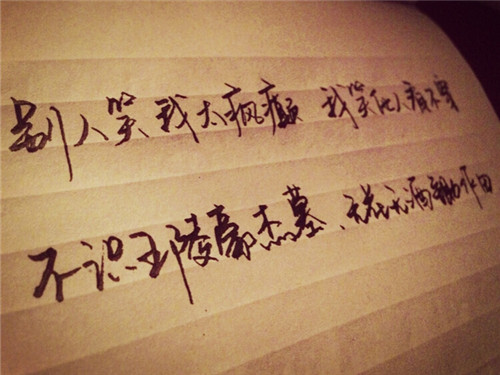 别人笑我太疯癫 我笑他人看不穿
不识五陵豪杰墓、无花无酒锄作田